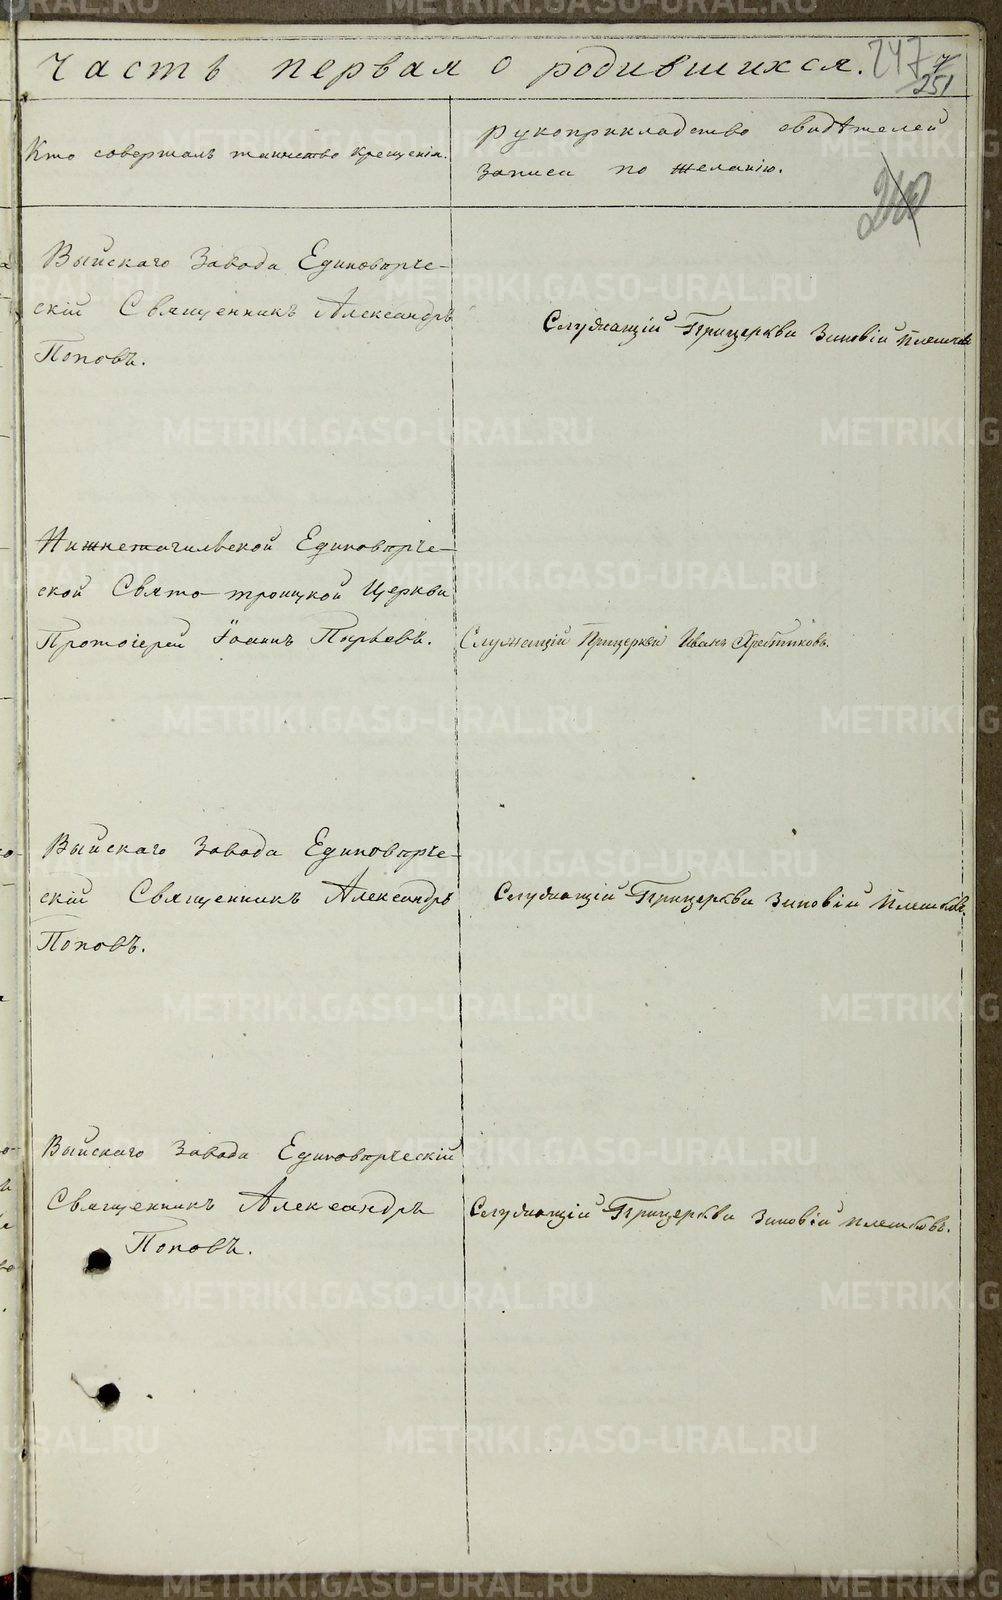 Часть первая о родившихся. 247 7
251
Кто совершалъ таинство крещенія.
рукоприкладство свидѣтелей
записи по желанію.
240
Выйскаго Завода Единовѣрче-
скій Священникъ Александръ
Поповъ.
Служащій При церкви Зиновій Плешковъ
Нижнетагильской Единовѣрче-
ской Свято-троицкой Церкви
Протоіерей Іоаннъ Пырьевъ.
Служащій При церкви Иванъ
Выйскаго Завода Единовѣрче-
скій Священникъ Александръ
Поповъ.
Служащій При церкви Зиновій Плешковъ.
Выйскаго Завода Единовѣрческій
Священникъ Александръ
Поповъ.
Служащій При церкви Зиновій плешковъ.
METRIKI.GASO-URAL.RU